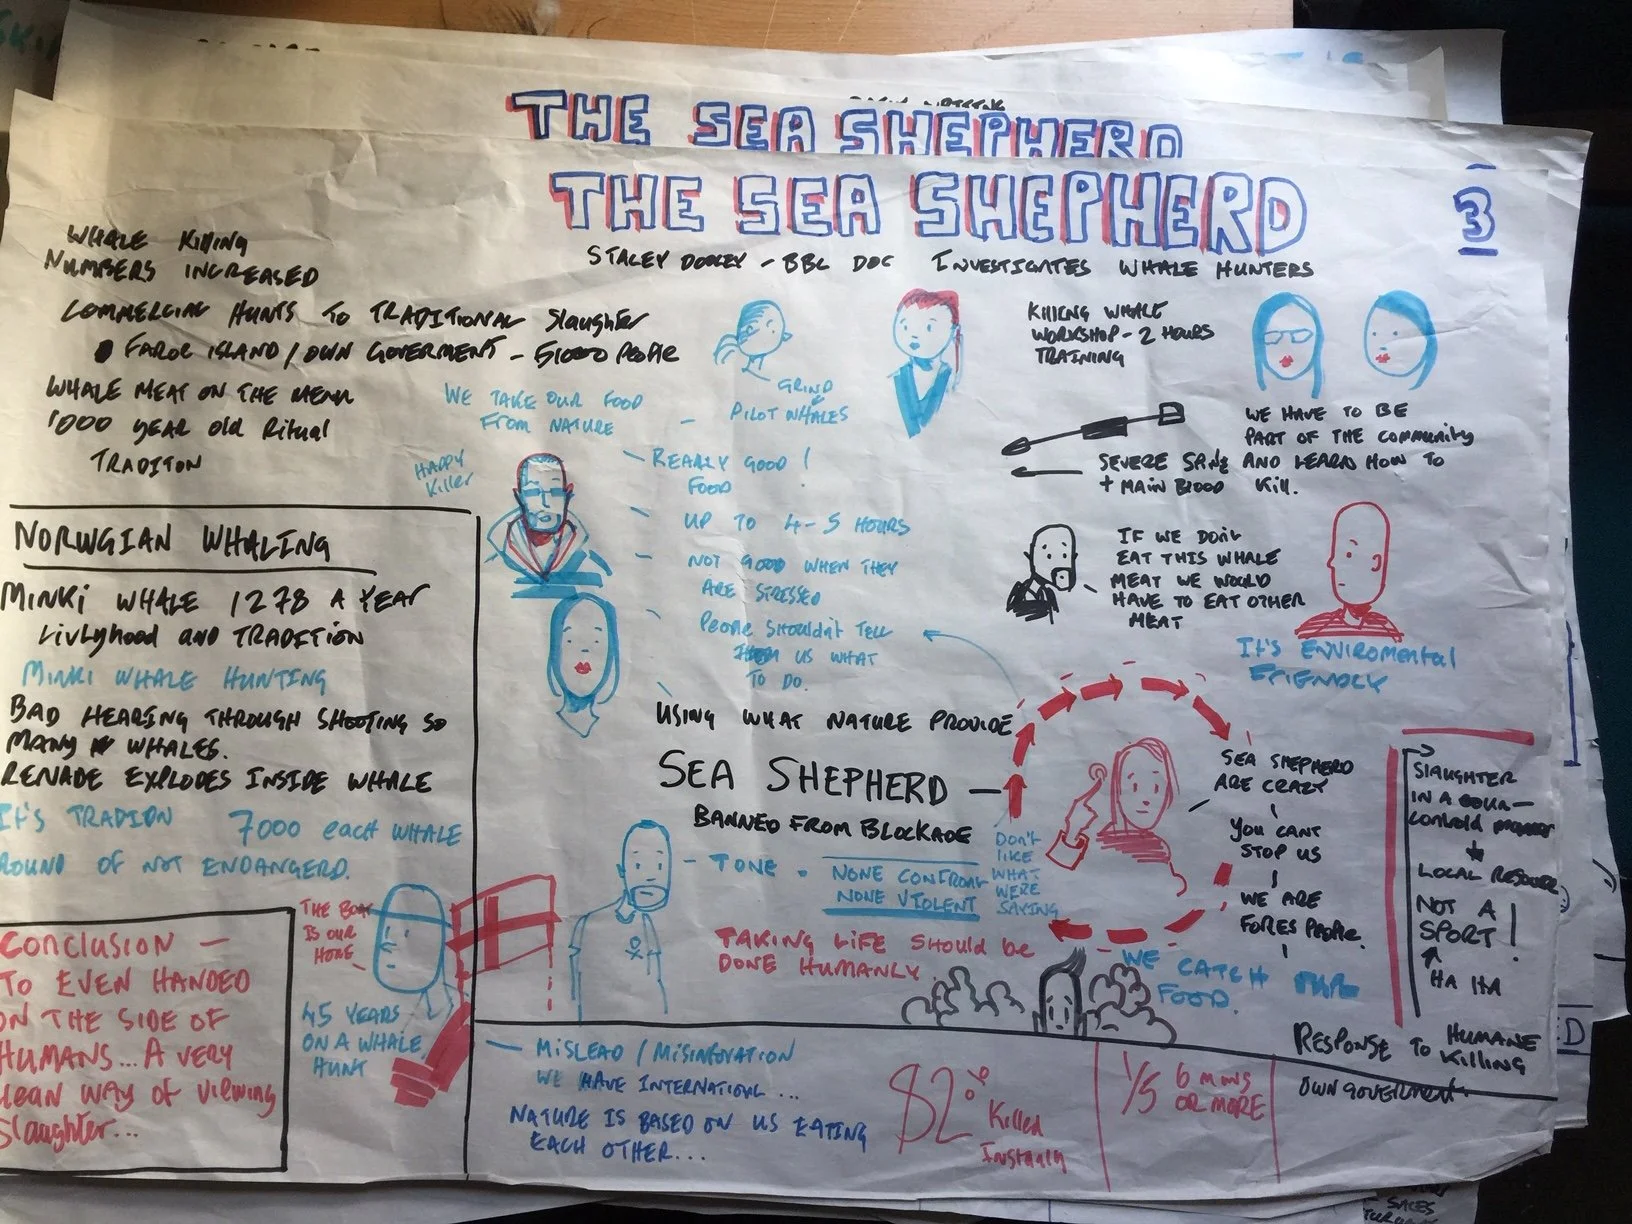 THE SEA SHEPHERD
THE SEA SHEPHERD
3
STACEY DOOLEY - BBC DOC INVESTIGATES WHALE HUNTERS
WHALE KILLING
NUMBERS INCREASED
COMMERCIAL HUNTS TO TRADITIONAL Slaughter
FAROE ISLAND / OWN GOVERMENT - 51000 PEOPLE
WHALE MEAT ON THE MENU
1000 YEAR old Ritual
TRADITON
WE TAKE OUR FOOD
FROM NATURE
GRIND
PILOT WHALES
HAPPY
Killer
- REALLY GOOD !
FOOD
- UP TO 4-5 HOURS
- NOT GOOD WHEN THEY
ARE STRESSED
People Shouldn't TELL
US WHAT
TO DO.
USING WHAT NATURE PROVIDE
KILLING WHALE
WORKSHOP - 2 HOURS
TRAINING
WE HAVE TO BE
PART OF THE COMMUNITY
AND LEARN HOW TO
Kill.
SEVERE SPINE
+ MAIN BLOOD
IF WE DON'T
EAT THIS WHALE
MEAT WE WOULD
HAVE TO EAT OTHER
MEAT
IT'S ENVIROMENTAL
FRIENDLY
NORWGIAN WHALING
MINKI WHALE 1278 A YEAR
LIVLYHOOD AND TRADITION
MINKI WHALE HUNTING
BAD HEARING THROUGH SHOOTING SO
MANY WHALES.
RENADE EXPLODES INSIDE WHALE
IT'S TRADION 7000 each WHALE
OUND OF NOT ENDANGERD.
THE BOAT
IS OUR
HOME
45 YEARS
ON A WHALE
HUNT
CONCLUSION -
TO EVEN HANDED
ON THE SIDE OF
HUMANS... A VERY
CLEAN WAY OF VIEWING
Slaughter...
SEA SHEPHERD -
BANNED FROM BLOCKADE
- TONE - NONE CONFRONT
NONE VIOLENT
DON'T
LIKE
WHAT
WERE
SAYING
TAKING LIFE Should be
DONE HUMANLY
SEA SHEPHERD
ARE CRAZY
YOU CANT
STOP US
WE ARE
FORES PEOPLE.
WE CATCH OUR
FOOD.
SLAUGHTER
IN A
LOCAL
NOT A
SPORT !
HA HA
RESPONSE TO HUMANE
Killing
- MISLEAD / MISINFOVATION
WE HAVE INTERNATIOUL ...
NATURE IS BASED ON US EATING
EACH OTHER...
82% Killed
Instantly
1/5 6 MINS
OR MORE
OWN GOVERMENT
SALES